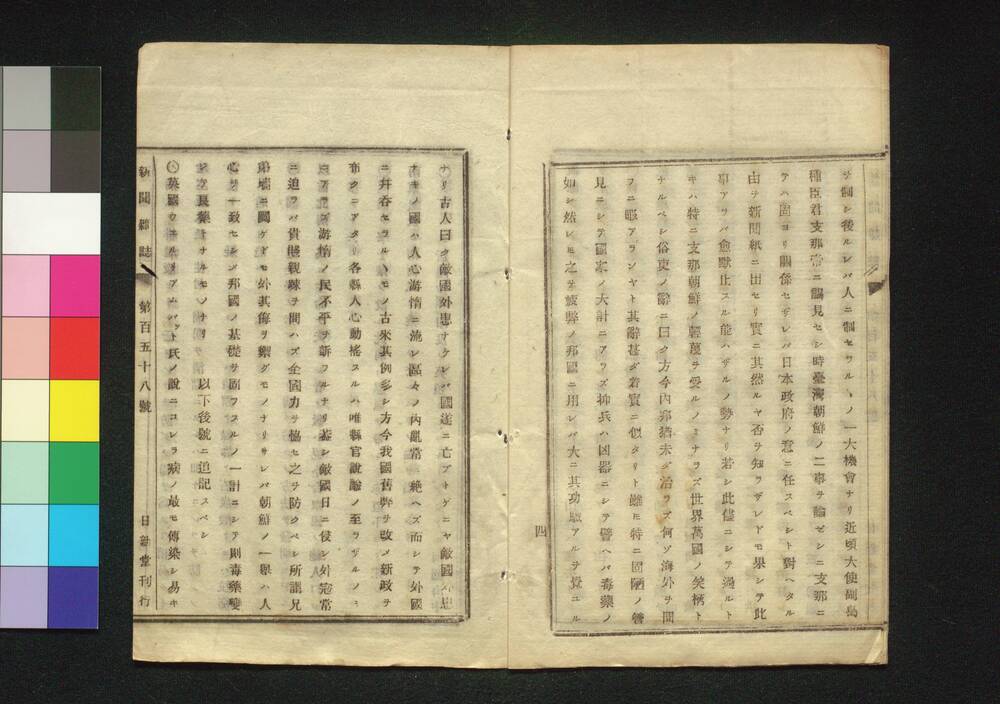 サ制シ後ルレバ人ニ制セラルヽノ一大機會ナリ近頃大使副島
種臣君支那帝ニ謁見セシ時臺灣朝鮮ノ二事ヲ論ゼシニ支那ニ
テハ固ヨリ關係セザレバ日本政府ノ意ニ任スベシト對ヘタル
由ヲ新聞紙ニ出セリ實ニ其然ルヤ否ヲ知ラザレドモ果シテ此
事アリハ愈默止スル能ハザルノ勢ナリ若シ此儘ニシテ過ルト
キハ特ニ支那朝鮮ノ輕蔑ヲ受ルノミナラズ世界萬國ノ笑柄ト
ナルベシ俗吏ノ辭ニ曰ク方今內邦猶未ダ治ラズ何ゾ海外ヲ問
フニ暇アランヤト其辭甚ダ着實ニ似タリト雖モ特ニ固陋ノ
見ニシテ國家ノ大計ニアラズ抑兵ハ凶器ニシテ譬ヘバ毒藥ノ
如シ然レモ之ヲ疲弊ノ邦國ニ用レバ大ニ其功驗アルヲ覺ユル
四
ナリ古人曰ク敵國外患ナケレバ國遂ニ亡ブトゲニヤ敵國外患
ナキノ國ハ人心游惰ニ流レ區々ノ內亂常ニ絕ヘズ而シテ外國
ニ并呑セラルヽモノ古來其例多シ方今我國舊弊ヲ改メ新政ヲ
布クニアタリ各縣人心動搖スルハ唯縣官說諭ノ至ラザルノミ
ニアラズ游惰ノ民不平ヲ訴フルナリ蓋シ敵國日ニ侵シ外寇常
ニ迫ラバ貴賤親疎ヲ問ハズ全國力ヲ協セ之ヲ防クベシ所謂兄
弟墻ニ鬩ゲドモ外其侮ヲ禦グモノナリサレバ朝鮮ノ一擧ハ人
心ヲ一致セシメ邦國ノ基礎ヲ固フスルノ一計ニシテ則毒藥變
ジテ良藥トナルモノナリ 以下後號ニ追記スベシ
○英國ウエルリアムバット氏ノ說ニコレラ病ノ最モ傳染シ易キ
新聞雜誌 第百五十八號 日新堂刊行